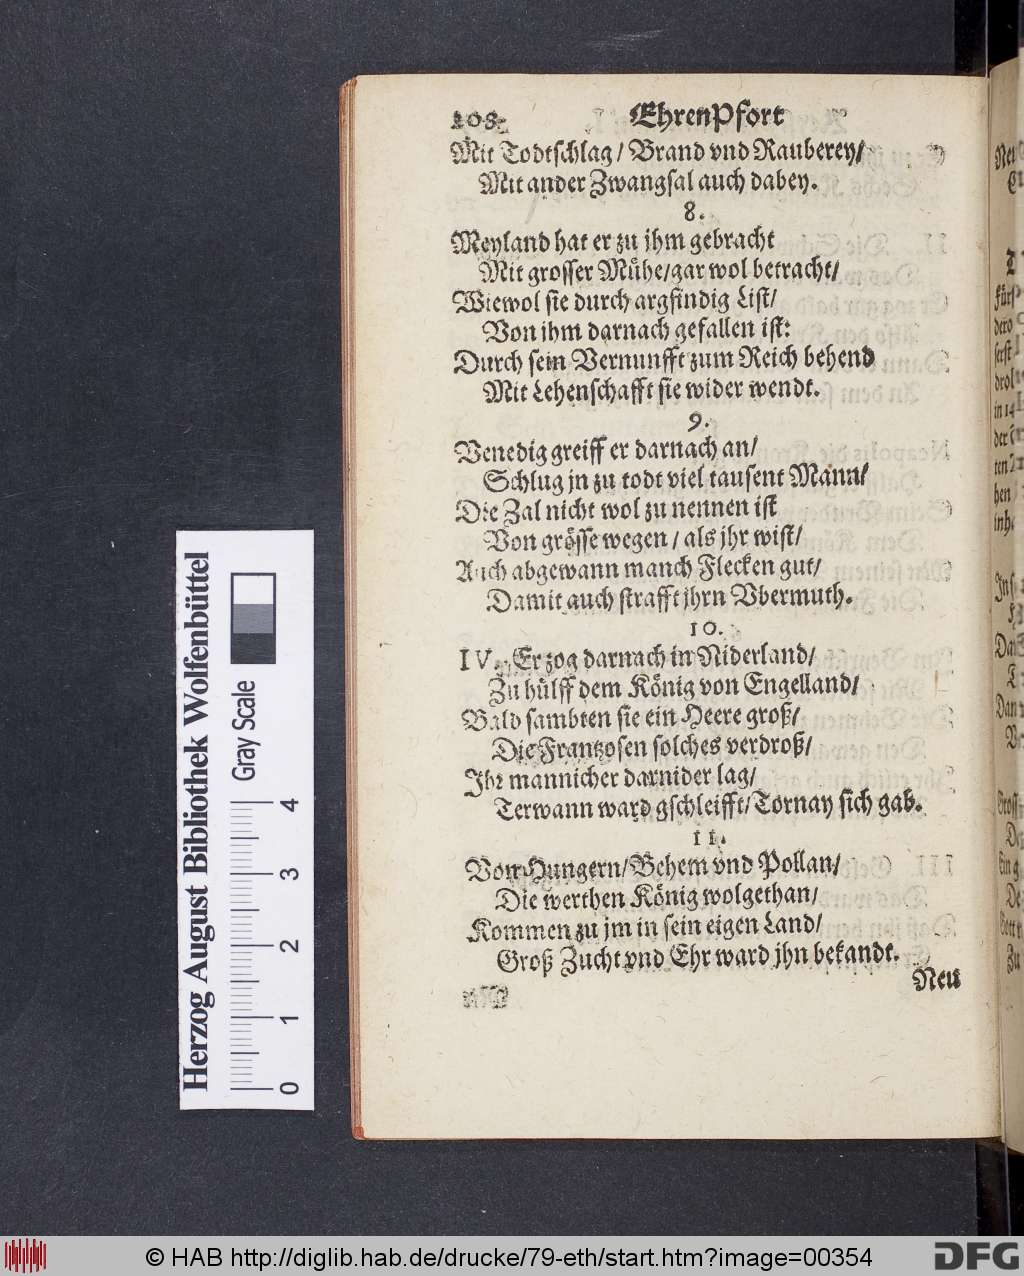 208. EhrenPfort
Mit Todtschlag / Brand vnd Rauberey/
Mit ander Zwangsal auch dabey.
8.
Meyland hat er zu jhm gebracht
Mit grosser Mühe/gar wol betracht/
Wiewol sie durch argfindig List/
Von ihm darnach gefallen ist:
Durch sein Vernunfft zum Reich behend
Mit Lehenschafft sie wider wendt.
9.
Venedig greiff er darnach an/
Schlug jn zu todt viel tausent Mann/
Die Zal nicht wol zu nennen ist
Von grösse wegen / als jhr wist/
Auch abgewann manch Flecken gut/
Damit auch strafft jhrn Vbermuth.
10.
IV. Er zog darnach in Niderland/
Zu hülff dem König von Engelland/
Bald sambten sie ein Heere groß/
Die Frantzosen solches verdroß/
Ihr mannicher darnider lag/
Terwann ward gschleifft/Tornay sich gab.
11.
Von Hungern/Behem vnd Pollan/
Die werthen König wolgethan/
Kommen zu jm in sein eigen Land/
Groß Zucht vnd Ehr ward jhn bekandt.
Neu
Herzog August Bibliothek Wolfenbüttel
Gray Scale
0 1 2 3 4
© HAB http://diglib.hab.de/drucke/79-eth/start.htm?image=00354
DFG